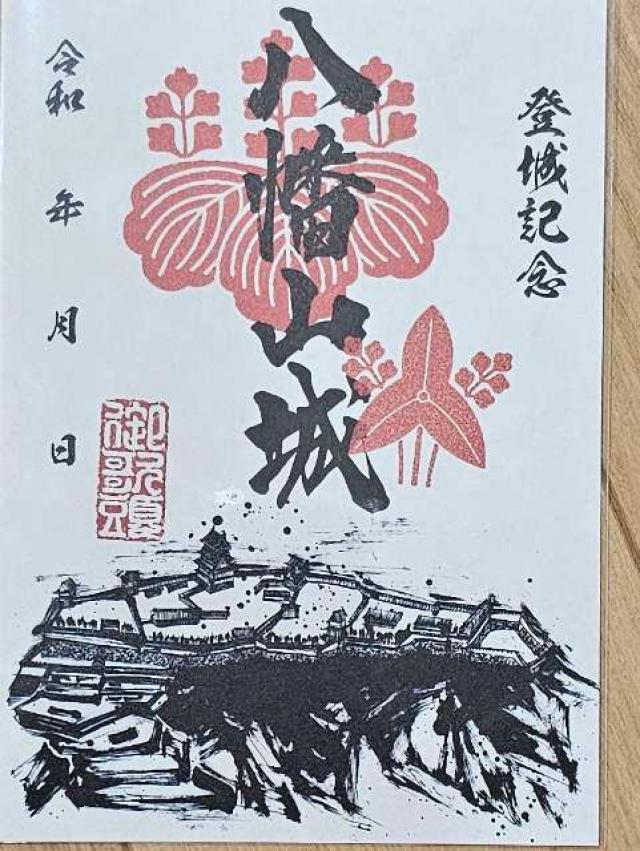 登城記念
八幡山城
令和 年 月 日